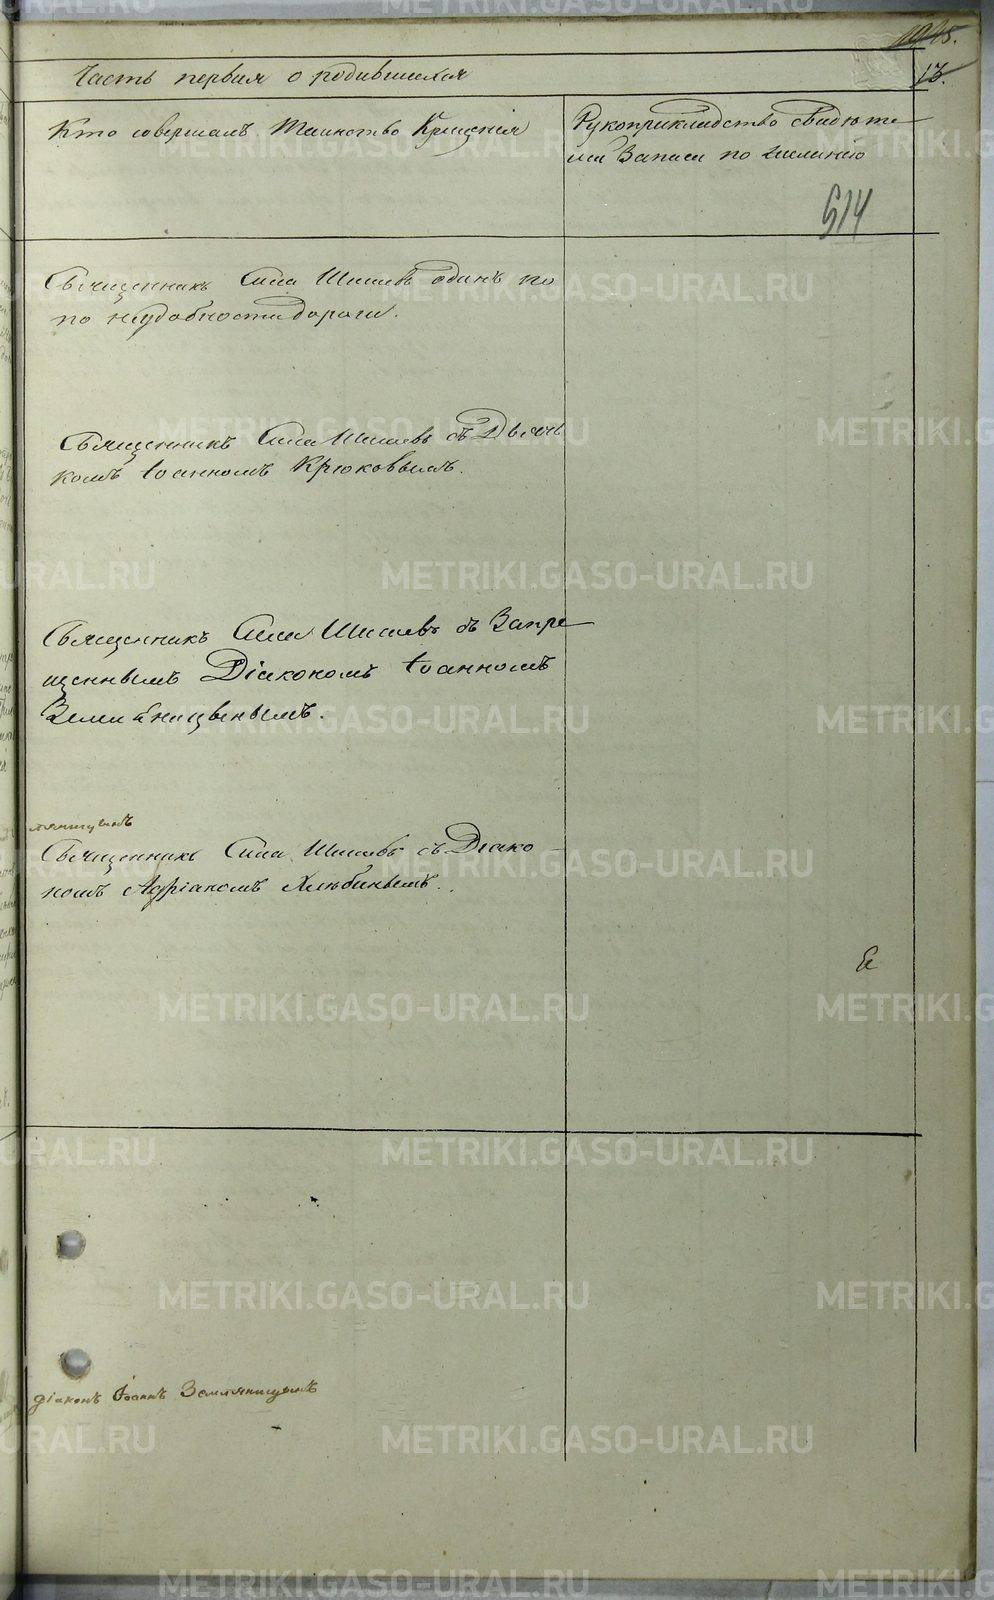 1915.
Часть первая о родившихся
13.
Кто совершалъ Таинство Крещенія
Рукоприкладство свидѣте-
лей Записи по желанію
514
Священникъ Сила Шишевъ одинъ по
по неудобности дороги.
Священникъ Сила Шишевъ съ Дьяч-
комъ Іоанномъ Крюковымъ.
Священникъ Сила Шишевъ съ Запре-
щеннымъ Діакономъ Іоанномъ
Земляницынымъ.
Священникъ Сила Шишевъ съ Діако-
номъ Адріаномъ Хлѣбинымъ.
діаконъ Іоаннъ Земляницынъ
METRIKI.GASO-URAL.RU